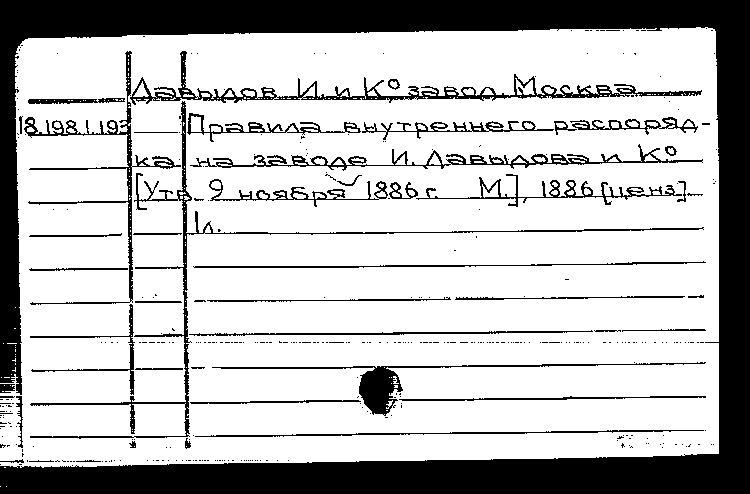 Давыдов И. и К° завод. Москва
18.198.1.193 Правила внутреннего распоряд-
ка на заводе И. Давыдова и К°
[Утв. 9 ноября 1886 г. М.], 1886 [ценз].
1 л.